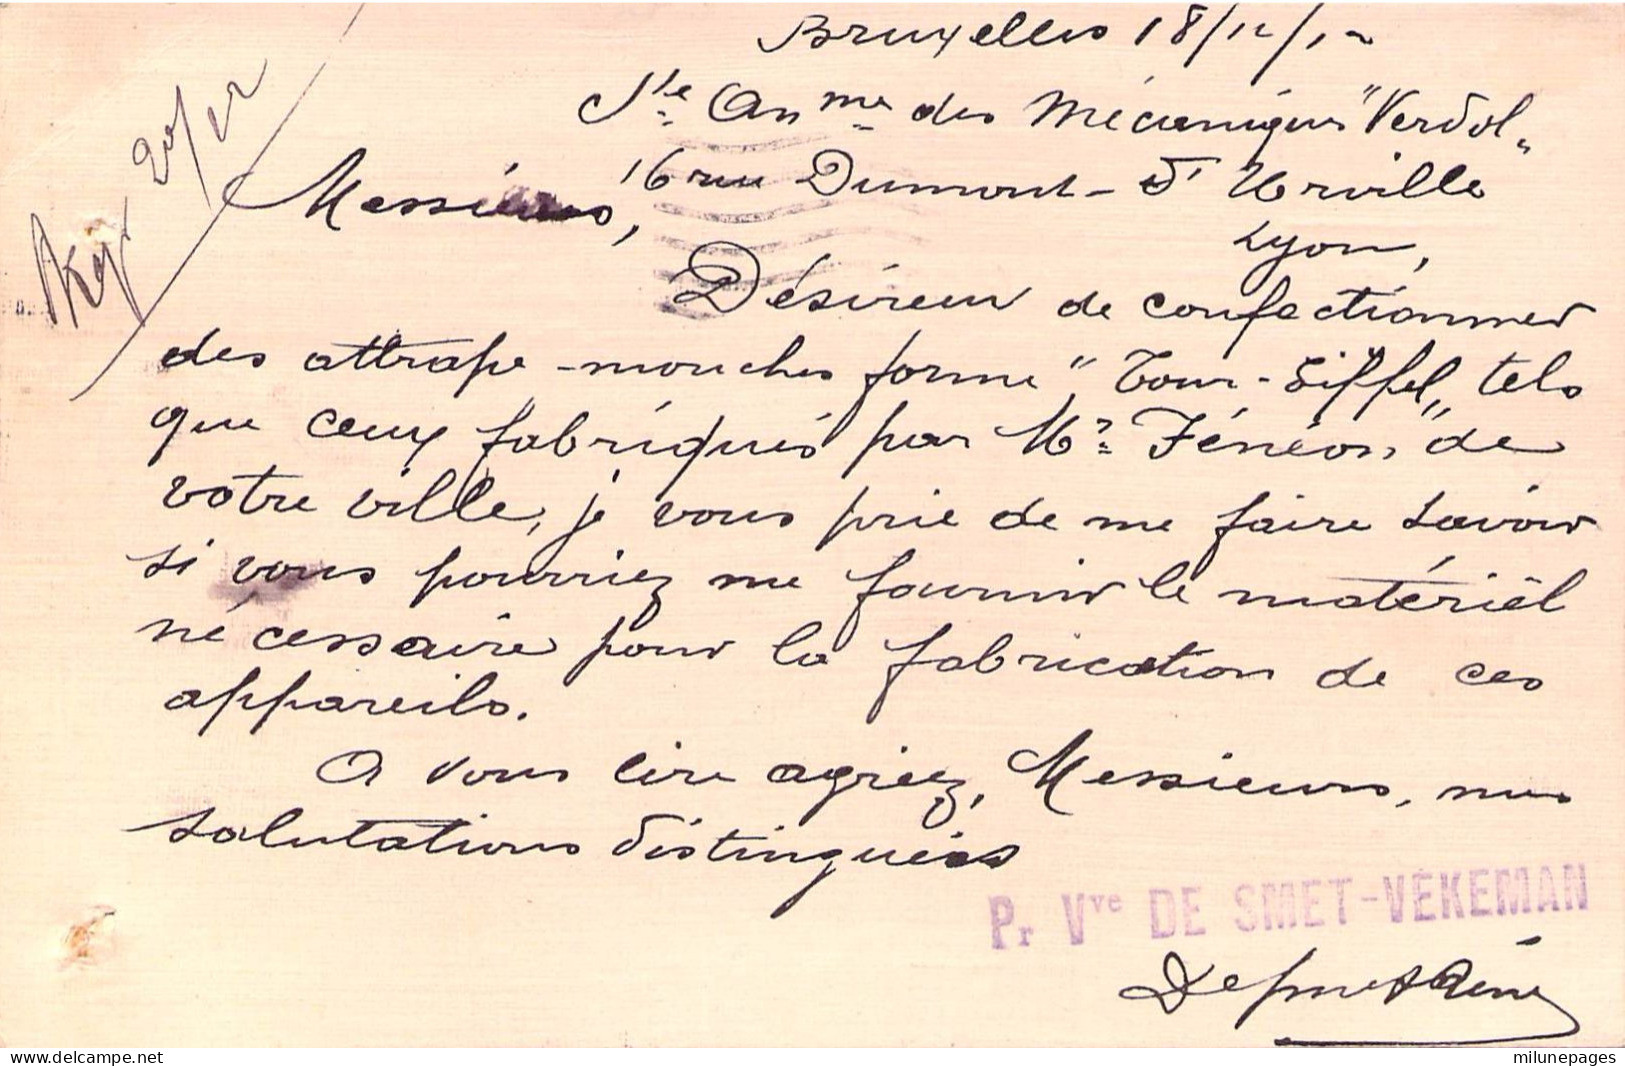 Bruxelles 18/12/12
Sté Anme des Mécaniques "Verdol"
16 rue Dumont-d'Urville
Lyon,
Rép 20/12
Messieurs,
Désireux de confectionner
des attrape-mouches forme "Tour-Eiffel" tels
que ceux fabriqués par Mr Fénéon de
votre ville, je vous prie de me faire savoir
si vous pourriez me fournir le matériël
nécessaire pour la fabrication de ces
appareils.
A vous lire agriez, Messieurs, nos
salutations distinguées
Pr Vve DE SMET-VÉKEMAN
milunepages